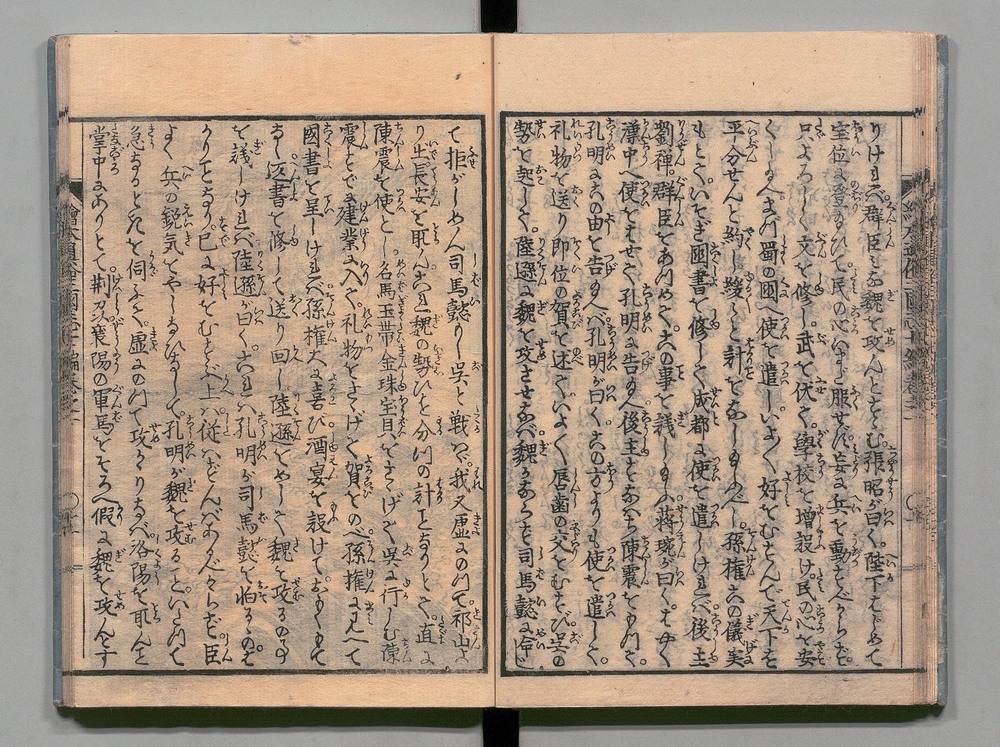 りければ群臣みな魏を攻んとすゝむ張昭が曰く陛下はじめて
宝位に登り給ひて民の心いまだ服せず妄に兵を動すべからず
只よろしく文を修し武を伏て學校を増設け民の心を安
くし人を蜀の國へ使に遣しいよ〱好をむすんで天下を
平分せんと約し緩〱と計をなし給へ孫権この儀実
もとていそぎ國書を修して成都へ使を遣しければ後主
劉禅群臣をあつめてこの事を議し給ふ蒋琬が曰くはやく
漢中へ使をはせて孔明に告給へ後主すなはち陳震をもつて
孔明にこの由を告給へば孔明が曰くこの方よりも使を遣して
礼物を送り即位の賀を述ていよ〱唇歯の交をむすび呉の
勢を起して陸遜に魏を攻させなば魏かならず司馬懿に命じ
て拒がしめん司馬懿もし呉と戦はゞ我又虚にのつて祁山よ
り出長安を取んこれ魏の勢ひを分つの計なりとて直に
陳震を使とし名馬玉帯金珠宝貝をさゝげて呉に行しむ陳
震すでに建業に入て礼物をさゝげて賀をのべ孫権にまみえて
國書を呈しければ孫権大に喜び酒宴を設けておもくもて
なし返書を修して送り回し陸遜をめして魏を攻るの事
を議しければ陸遜が曰くこれは孔明が司馬懿を怕るゝのはかりことなり已に好をむすぶ上は従はずんばあるべからず臣
よく兵の鋭気をやしなひ孔明が魏を攻ることいたつて
急なるとを伺ふて虚にのつて攻かゝりなば洛陽を取んと
掌中にありとて荊州襄陽の軍馬をそろへ假に魏を攻んす